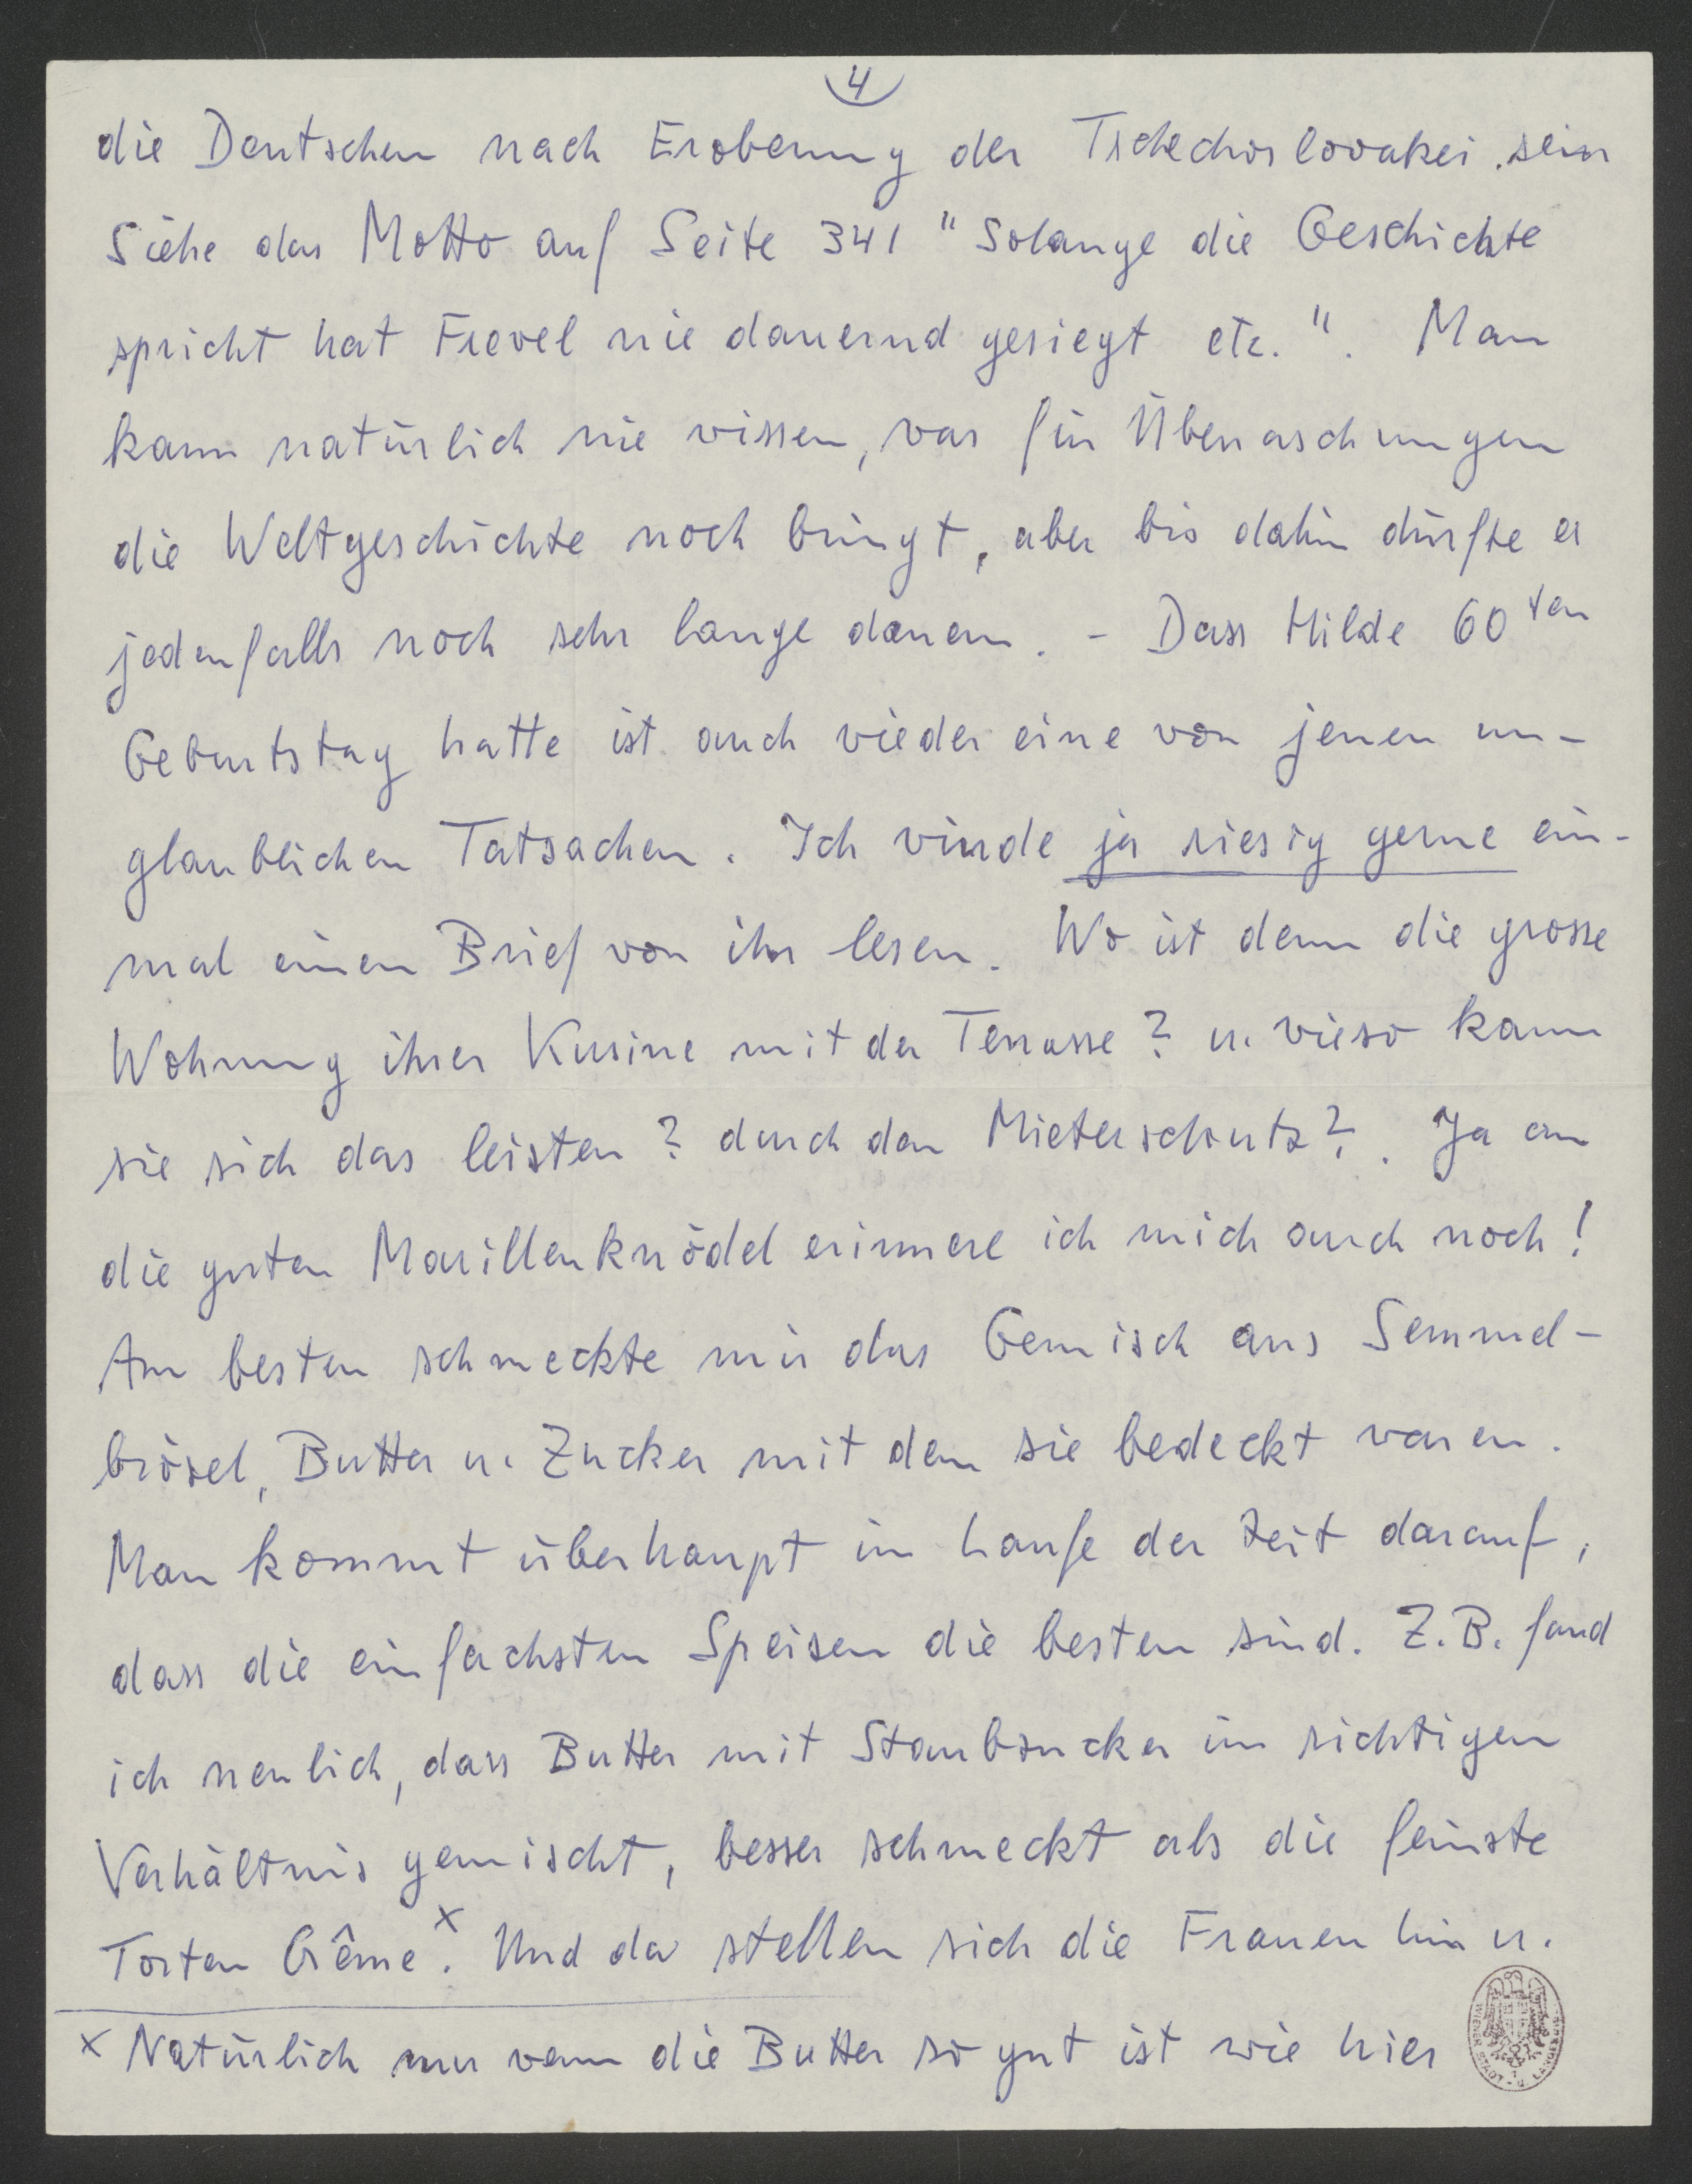 4
die Deutschen nach Eroberung der Tschechoslovakei. sein
Siehe das Motto auf Seite 341 "Solange die Geschichte
spricht hat Frevel nie dauernd gesiegt etc.". Man
kann natürlich nie wissen, was für Überraschungen
die Weltgeschichte noch bringt, aber bis dahin dürfte es
jedenfalls noch sehr lange dauern. - Dass Hilde 60ten
Geburtstag hatte ist auch wieder eine von jenen un-
glaublichen Tatsachen. Ich würde ja riesig gerne ein-
mal einen Brief von ihr lesen. Wo ist denn die grosse
Wohnung ihrer Kusine mit der Terrasse? u. wieso kann
sie sich das leisten? durch den Mieterschutz?. Ja an
die guten Marillenknödel erinnere ich mich auch noch!
Am besten schmeckte mir das Gemisch aus Semmel-
brösel, Butter u. Zucker mit dem sie bedeckt waren.
Man kommt überhaupt im Laufe der Zeit darauf,
dass die einfachsten Speisen die besten sind. Z.B. fand
ich neulich, dass Butter mit Staubzucker im richtigen
Verhältnis gemischt, besser schmeckt als die feinste
Torten Crême.x Und da stellen sich die Frauen hin u.
x Natürlich nur wenn die Butter so gut ist wie hier